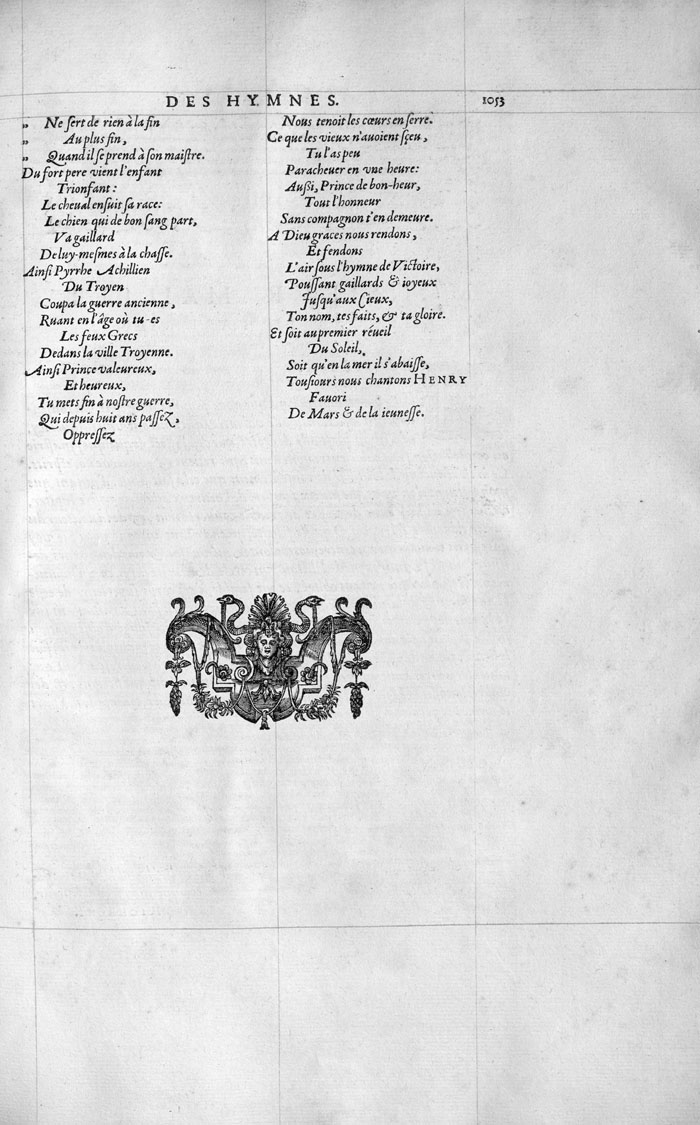 DES HYMNES. 1053
„ Ne ſert de rien à la fin
„ Au plus fin,
„ Quand il ſe prend à ſon maiſtre.
Du fort pere vient l'enfant
Trionfant:
Le cheual enſuit ſa race:
Le chien qui de bon ſang part,
Va gaillard
De luy-meſmes à la chaſſe.
Ainſi Pyrrhe Achillien
Du Troyen
Coupa la guerre ancienne,
Ruant en l'âge où tu-es
Les feux Grecs
Dedans la ville Troyenne.
Ainſi Prince valeureux,
Et heureux,
Tu mets fin à noſtre guerre,
Qui depuis huit ans paſſez,
Oppreſſez
Nous tenoit les cœurs en ſerre.
Ce que les vieux n'auoient ſçeu,
Tu l'as peu
Paracheuer en vne heure:
Auſſi, Prince de bon-heur,
Tout l'honneur
Sans compagnon t'en demeure.
A Dieu graces nous rendons,
Et fendons
L'air ſous l'hymne de Victoire,
Pouſſant gaillards & ioyeux
Juſqu'aux Cieux,
Ton nom, tes faits, & ta gloire.
Et ſoit au premier réueil
Du Soleil,
Soit qu'en la mer il s'abaiſſe,
Touſiours nous chantons HENRY
Fauori
De Mars & de la ieuneſſe.